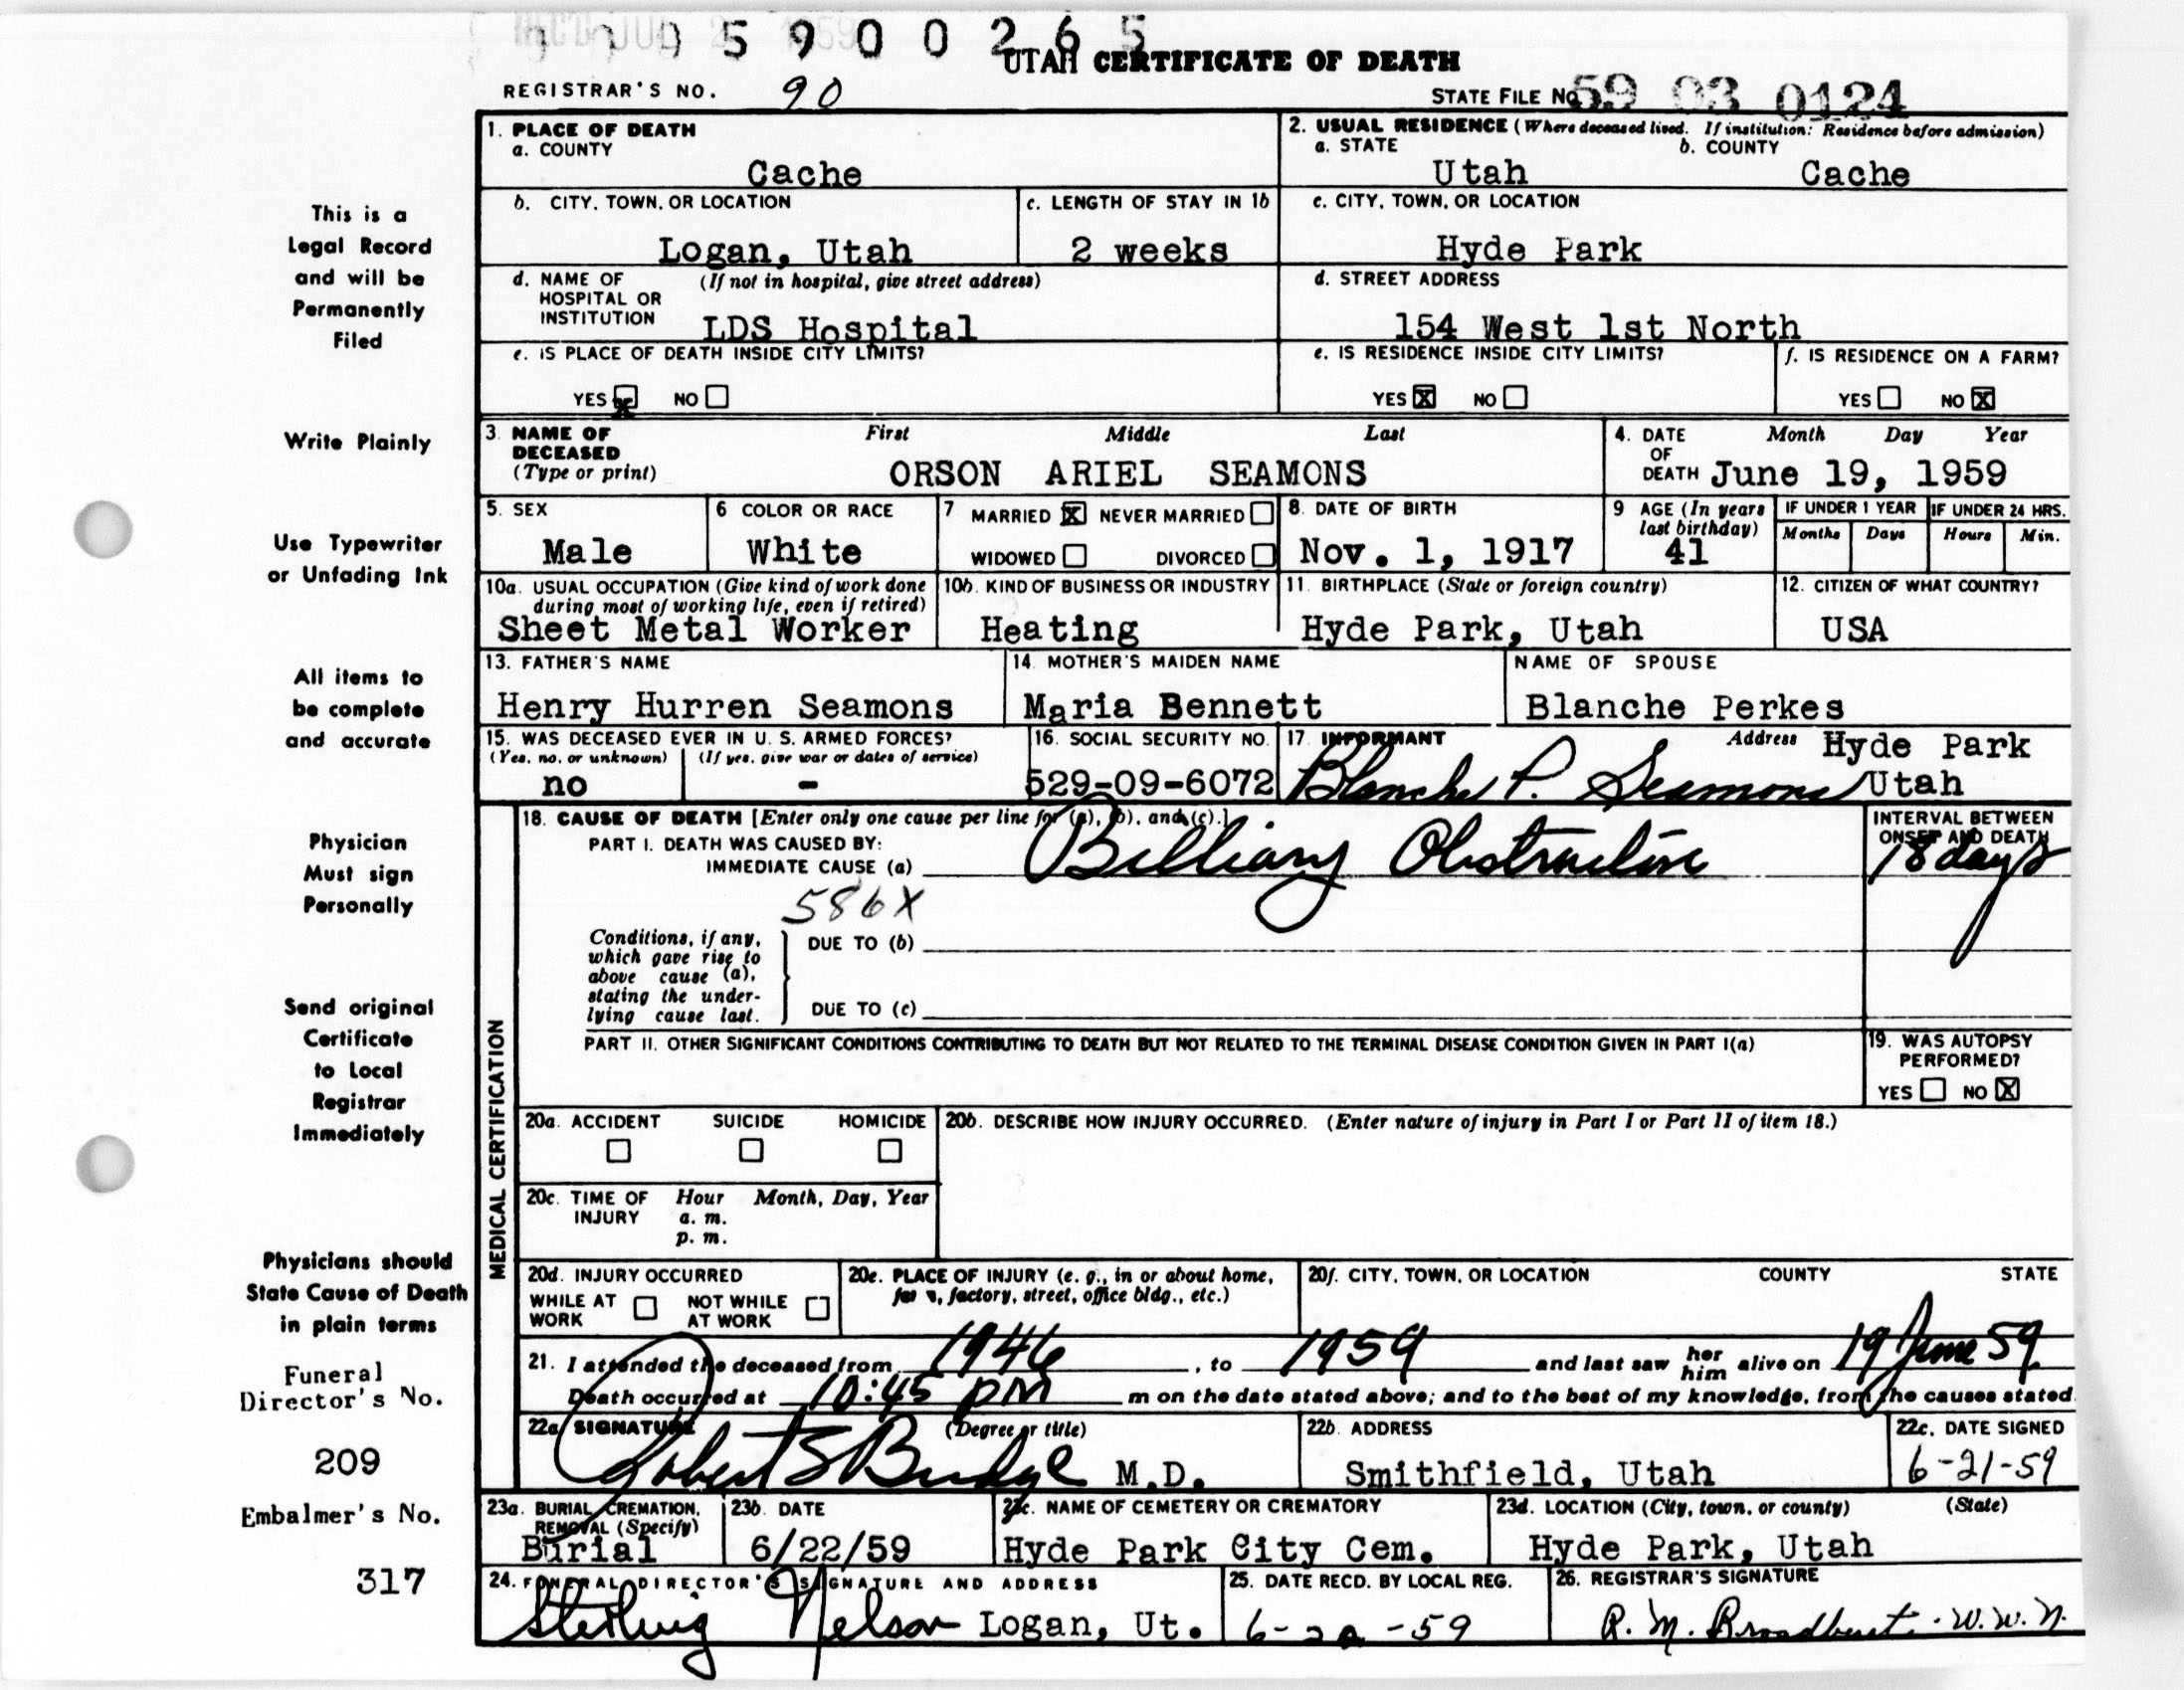 5 9 0 0 2 6 5
UTAH CERTIFICATE OF DEATH
REGISTRAR'S NO. 90
STATE FILE No. 59 03 0124
1. PLACE OF DEATH
a. COUNTY
Cache
2. USUAL RESIDENCE (Where deceased lived. If institution: Residence before admission)
a. STATE b. COUNTY
Utah Cache
b. CITY, TOWN, OR LOCATION
Logan, Utah
c. LENGTH OF STAY IN 1b
2 weeks
c. CITY, TOWN, OR LOCATION
Hyde Park
d. NAME OF (If not in hospital, give street address)
HOSPITAL OR
INSTITUTION LDS Hospital
d. STREET ADDRESS
154 West 1st North
e. IS PLACE OF DEATH INSIDE CITY LIMITS?
YES X NO
e. IS RESIDENCE INSIDE CITY LIMITS?
YES X NO
f. IS RESIDENCE ON A FARM?
YES NO X
3. NAME OF First Middle Last
DECEASED
(Type or print) ORSON ARIEL SEAMONS
4. DATE Month Day Year
OF
DEATH June 19, 1959
5. SEX
Male
6 COLOR OR RACE
White
7 MARRIED X NEVER MARRIED
WIDOWED DIVORCED
8. DATE OF BIRTH
Nov. 1, 1917
9 AGE (In years
last birthday)
41
IF UNDER 1 YEAR
Months Days
IF UNDER 24 HRS.
Hours Min.
10a. USUAL OCCUPATION (Give kind of work done
during most of working life, even if retired)
Sheet Metal Worker
10b. KIND OF BUSINESS OR INDUSTRY
Heating
11. BIRTHPLACE (State or foreign country)
Hyde Park, Utah
12. CITIZEN OF WHAT COUNTRY?
USA
13. FATHER'S NAME
Henry Hurren Seamons
14. MOTHER'S MAIDEN NAME
Maria Bennett
NAME OF SPOUSE
Blanche Perkes
15. WAS DECEASED EVER IN U. S. ARMED FORCES?
(Yes, no, or unknown) (If yes, give war or dates of service)
no -
16. SOCIAL SECURITY NO.
529-09-6072
17. INFORMANT Address Hyde Park
Blanche P. Seamons Utah
MEDICAL CERTIFICATION
18. CAUSE OF DEATH [Enter only one cause per line for (a), (b), and (c).]
PART I. DEATH WAS CAUSED BY:
IMMEDIATE CAUSE (a) Billiary Obstruction
INTERVAL BETWEEN
ONSET AND DEATH
18 days
586X
Conditions, if any,
which gave rise to
above cause (a),
stating the under-
lying cause last.
DUE TO (b)
DUE TO (c)
PART II. OTHER SIGNIFICANT CONDITIONS CONTRIBUTING TO DEATH BUT NOT RELATED TO THE TERMINAL DISEASE CONDITION GIVEN IN PART I(a)
19. WAS AUTOPSY
PERFORMED?
YES NO X
20a. ACCIDENT SUICIDE HOMICIDE
20b. DESCRIBE HOW INJURY OCCURRED. (Enter nature of injury in Part I or Part II of item 18.)
20c. TIME OF Hour Month, Day, Year
INJURY a. m.
p. m.
20d. INJURY OCCURRED
WHILE AT NOT WHILE
WORK AT WORK
20e. PLACE OF INJURY (e. g., in or about home,
farm, factory, street, office bldg., etc.)
20f. CITY, TOWN, OR LOCATION COUNTY STATE
21. I attended the deceased from 1946, to 1959 and last saw her him alive on 19 June 59
Death occurred at 10:45 PM m on the date stated above; and to the best of my knowledge, from the causes stated.
22a. SIGNATURE (Degree or title)
Robert S Budge M.D.
22b. ADDRESS
Smithfield, Utah
22c. DATE SIGNED
6-21-59
23a. BURIAL, CREMATION,
REMOVAL (Specify)
Burial
23b. DATE
6/22/59
23c. NAME OF CEMETERY OR CREMATORY
Hyde Park City Cem.
23d. LOCATION (City, town, or county) (State)
Hyde Park, Utah
24. FUNERAL DIRECTOR'S SIGNATURE AND ADDRESS
Sterling Nelson Logan, Ut.
25. DATE RECD. BY LOCAL REG.
6-22-59
26. REGISTRAR'S SIGNATURE
R. M. Broadbent. W.W.N.
This is a
Legal Record
and will be
Permanently
Filed
Write Plainly
Use Typewriter
or Unfading Ink
All items to
be complete
and accurate
Physician
Must sign
Personally
Send original
Certificate
to Local
Registrar
Immediately
Physicians should
State Cause of Death
in plain terms
Funeral
Director's No.
209
Embalmer's No.
317